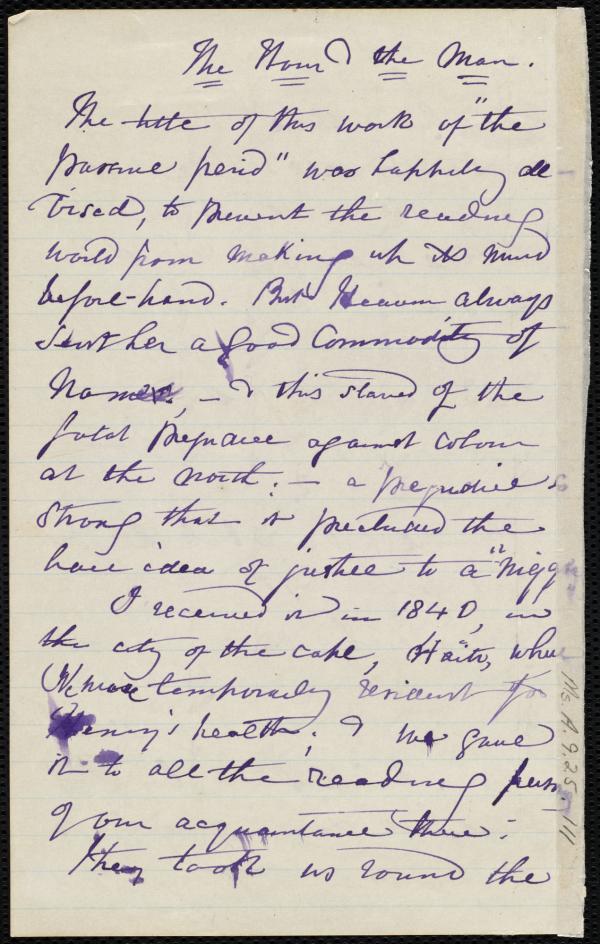 The Hour & the Man.
The title of this work of "the
purpose period" was happily de-
vised, to prevent the reading
world from making up its mind
before-hand. But Heaven always
sent her a good commodity of
Names, — & this staved off the
fatal prejudice against colour
at the north: — a prejudice so
strong that it precluded the
bare idea of justice to a "nigg
I received it in 1840, in
the city of the cape, Haiti, where
We were temporarily resident for
Henry's health; & we gave
it to all the reading pers
of our acquaintance there:
They took us round the
Ms. A. 9. 25. 111